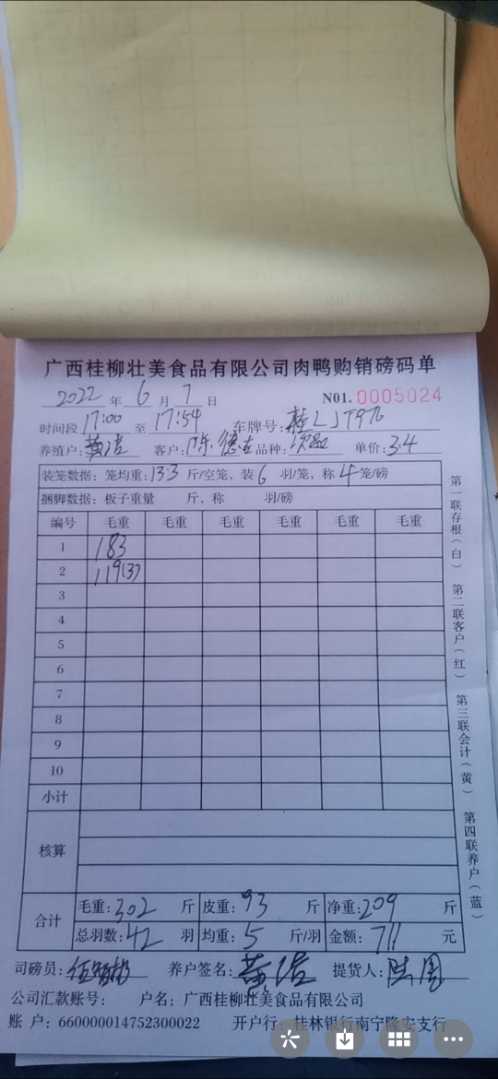 广西桂柳壮美食品有限公司肉鸭购销磅码单
2022 年 6 月 7 日 N01. 0005024
时间段 17:00 至 17:54 车牌号: 桂LJ7976
养殖户: 黄洁 客户: 陈德志 品种: 次品 单价: 3.4
装笼数据: 笼均重: 13.3 斤/空笼, 装 6 羽/笼, 称 4 笼/磅
捆脚数据: 板子重量 斤, 称 羽/磅
编号 毛重 毛重 毛重 毛重 毛重 毛重
1 183
2 119(3)
3
4
5
6
7
8
9
10
小计
核算
合计
毛重: 302 斤 皮重: 93 斤 净重: 209 斤
总羽数: 42 羽 均重: 5 斤/羽 金额: 711 元
司磅员: 养户签名: 黄洁 提货人:
公司汇款账号: 户名: 广西桂柳壮美食品有限公司
账 户: 660000014752300022 开户行: 桂林银行南宁隆安支行
第一联存根(白) 第二联客户(红) 第三联会计(黄) 第四联养户(蓝)